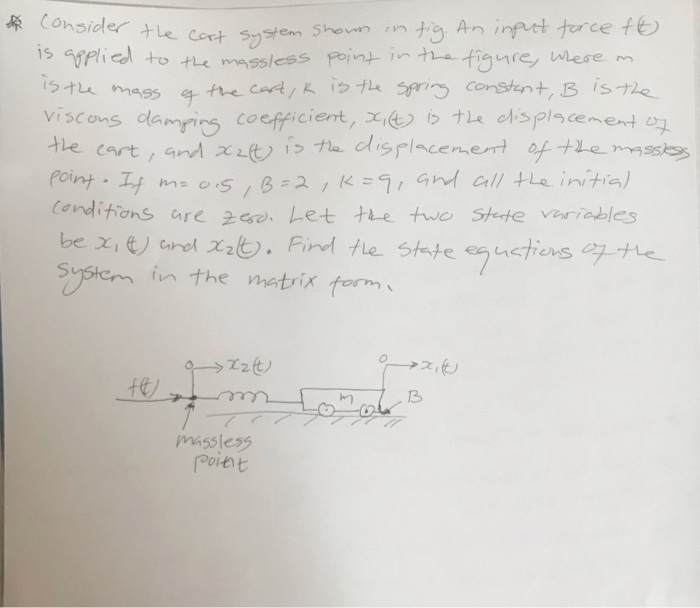 Consider the cart system shown in fig. An input force f(t)
is applied to the massless point in the figure, where m
is the mass of the cart, K is the spring constant, B is the
viscous damping coefficient, x₁(t) is the displacement of
the cart, and x₂(t) is the displacement of the massless
point. If m=0.5, B=2, K=9, and all the initial
conditions are zero. Let the two state variables
be x₁(t) and x₂(t). Find the state equations of the
system in the matrix form.
0 → x₂(t)
0 → x₁(t)
f(t)
M
B
massless
point